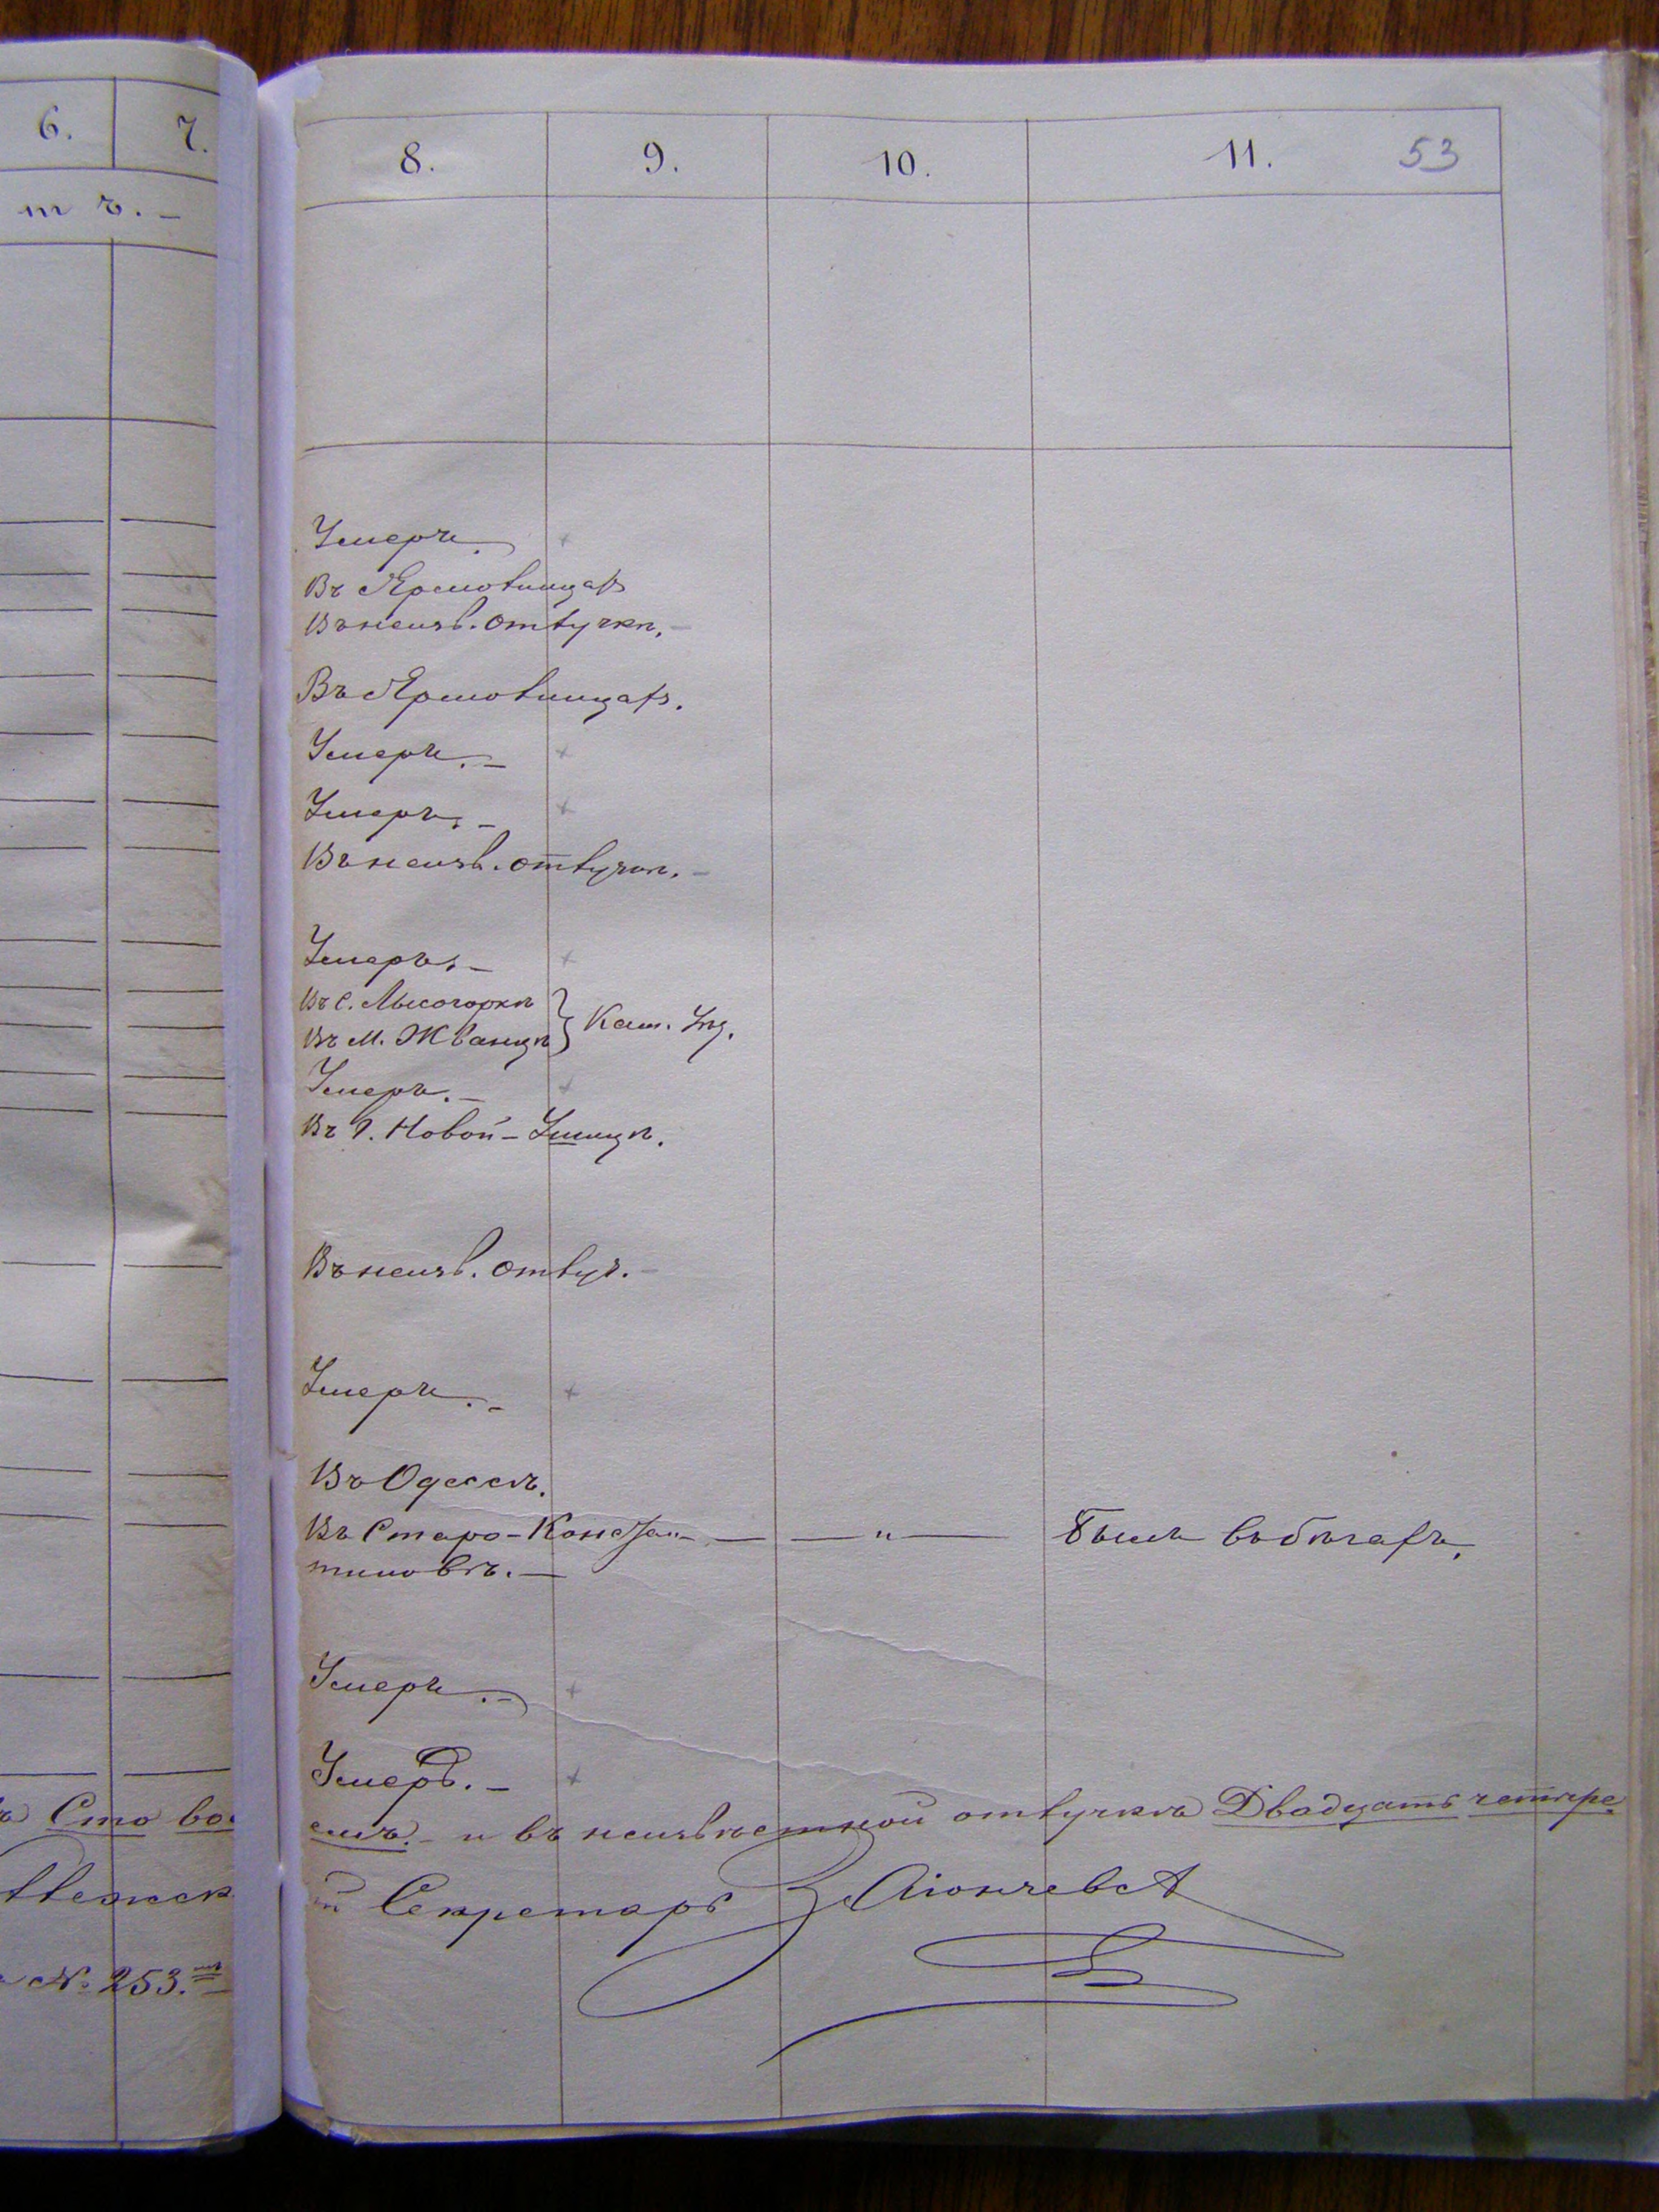 6. 7.
8. 9. 10. 11. 53
т ъ. –
Умеръ.
Въ Ярмолинцах
Въ неизв. отлучкѣ.
Въ Ярмолинцах.
Умеръ. –
Умеръ. –
Въ неизв. отлучкѣ.
Умеръ. –
Въ с. Лысогоркѣ
Въ м. Жванцѣ } Кам. Уѣз.
Умеръ. –
Въ г. Новой-Ушицѣ.
Въ неизв. отлуч.
Умеръ. –
Въ Одессѣ.
Въ Старо-Констан- — — " — Былъ въ бѣгахъ.
тиновѣ. —
Умеръ. –
Умеръ. –
Сто во
емъ. – и въ неизвѣстной отлучкѣ Двадцать четыре
Секретарь
№ 253.